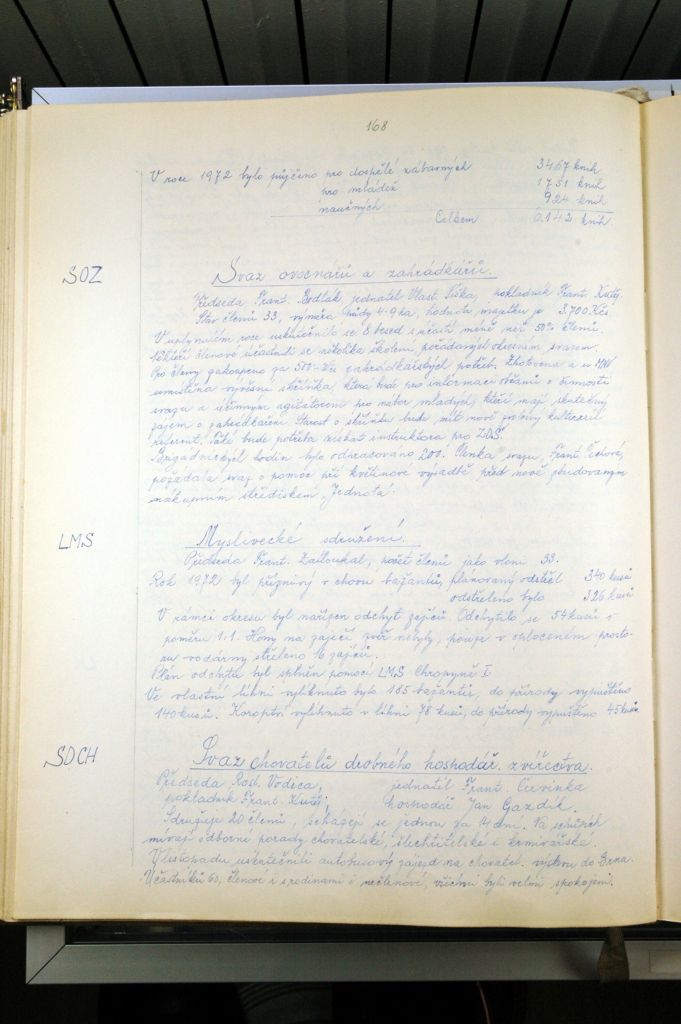 168
V roce 1972 bylo půjčeno pro dospělé zábavných 3467 knih
pro mládež 1751 knih
naučných 924 knih
Celkem 6.142 knih.
SOZ
Svaz ovocnářů a zahrádkářů.
Předseda Frant. Bodlák, jednatel Vlast. Tiška, pokladník Frant.
Stav členů 33, výměra půdy 4·9 ha, hodnota majetku je 3.700 Kčs
V uplynulém roce uskutečnilo se 8 besed s účastí méně než 50% členů.
Někteří členové účastnili se několika školení, pořádaných okresním svazem.
Pro členy zakoupeno za 500 Kčs zahrádkářských potřeb. Zhotovena a u MNV
umístěna vývěsní skřínka, která bude pro informaci občanů o činnosti
svazu a účinným agitátorem pro nábor mladých, kteří mají skutečný
zájem o zahrádkaření. Starost o skřínku bude mít nově zvolený kulturní
referent. Také bude potřeba získat instruktora pro ZDŠ.
Brigádnických hodin bylo odpracováno 200. Členka svazu, Frant.
požádala svaz o pomoc při květinové výsadbě před nově zbudovaným
nákupním střediskem „Jednota".
LMS
Myslivecké sdružení.
Předseda Frant. Zatloukal, počet členů jako vloni 33.
Rok 1972 byl příznivý v chovu bažantů, plánovaný odstřel 340 kusů
odstřeleno bylo 326 kusů
V rámci okresu byl nařízen odchyt zajíců. Odchytilo se 54 kusů v
poměru 1:1. Hony na zaječí zvěř nebyly, pouze v oploceném prosto-
ru vodárny střeleno 16 zajíců.
Plán odchytu byl splněn pomocí LMS Chropyně I
Ve vlastní líhni vylíhnuto bylo 185 bažantů, do přírody vypuštěno
140 kusů. Koroptví vylíhnuto v líhni 78 kusů, do přírody vypuštěno 45 kusů.
SDCH
Svaz chovatelů drobného hospodář. zvířectva.
Předseda Rost. Vodica, jednatel Frant. Červinka
pokladník Frant. hospodář Jan Gazdík.
Sdružuje 20 členů, scházejí se jednou za 14 dní. Na schůzích
mívají odborné porady chovatelské, šlechtitelské i krmivářské.
V listopadu uskutečnili autobusový zájezd na chovatel. výstavu do Brna.
Účastníků 60, členové i s rodinami i nečlenové, všichni byli velmi spokojeni.